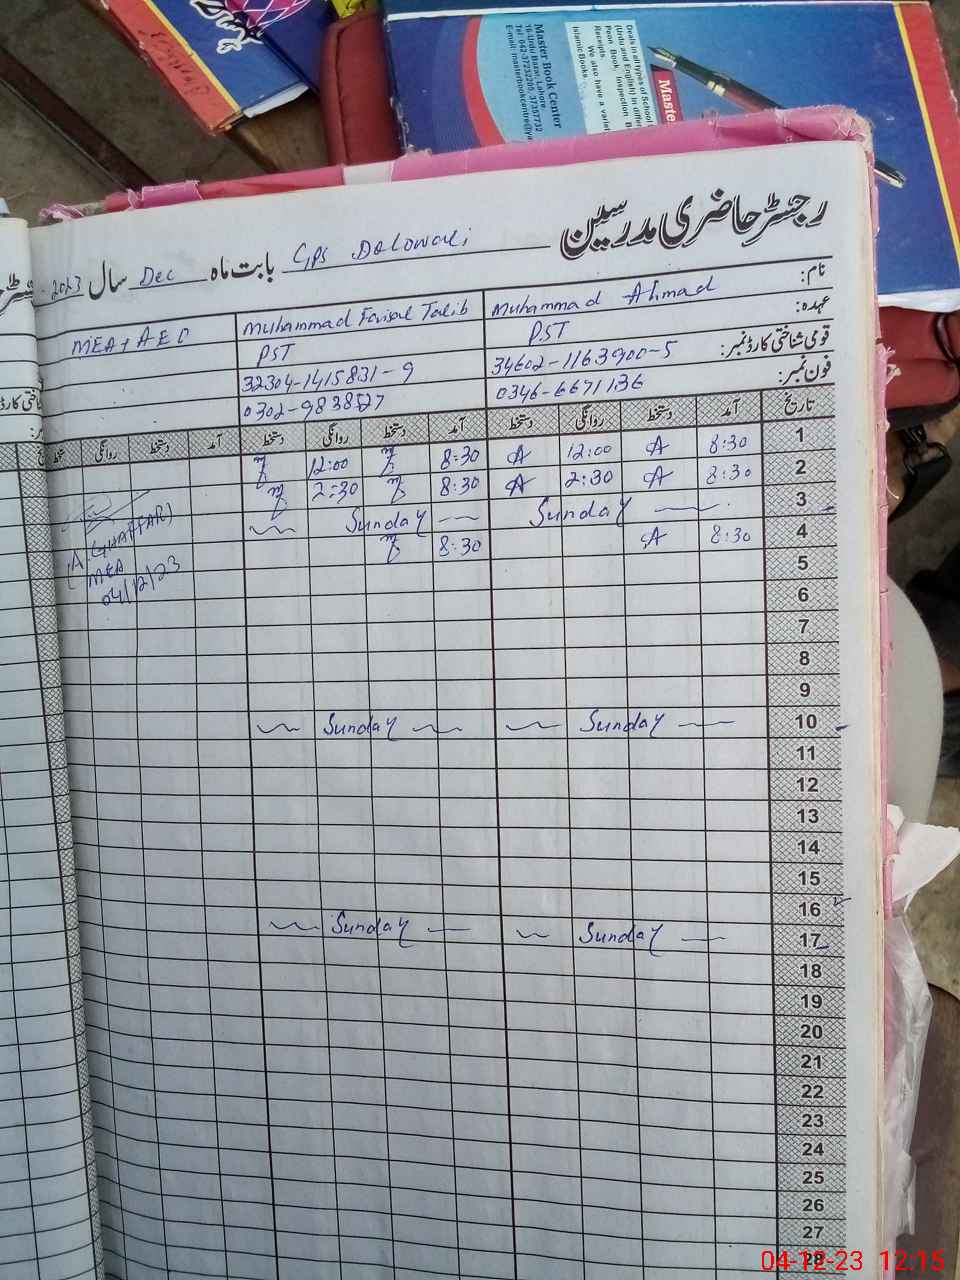 Master Book Center
16-Urdu Bazar, Lahore.
Tel: 042-37232205, 37237732
E-mail: masterbookcentre@ya
Deals in all types of School
(Urdu and English) in differ
Peon Book, Inspection B
Receipts.
We also have a variet
Islamic Books.
Maste
رجسٹر حاضری مدرسین
بابت ماہ GPS Dolowali
Dec سال 2023
نام: Muhammad Ahmad Muhammad Faisal Talib MEA + AEO
عہدہ: PST PST
قومی شناختی کارڈ نمبر: 34602-1163900-5 32304-1415831-9
فون نمبر: 0346-6671136 0302-9838527
تاریخ آمد دستخط روانگی دستخط آمد دستخط روانگی دستخط آمد دستخط روانگی
1 8:30 A 12:00 A 8:30 12:00
2 8:30 A 2:30 A 8:30 2:30
3 Sunday Sunday
4 8:30 A 8:30
(A. GHAFFAR)
MEA
04/12/23
5
6
7
8
9
10 Sunday Sunday
11
12
13
14
15
16
17 Sunday Sunday
18
19
20
21
22
23
24
25
26
27
28
04-12-23 12:15